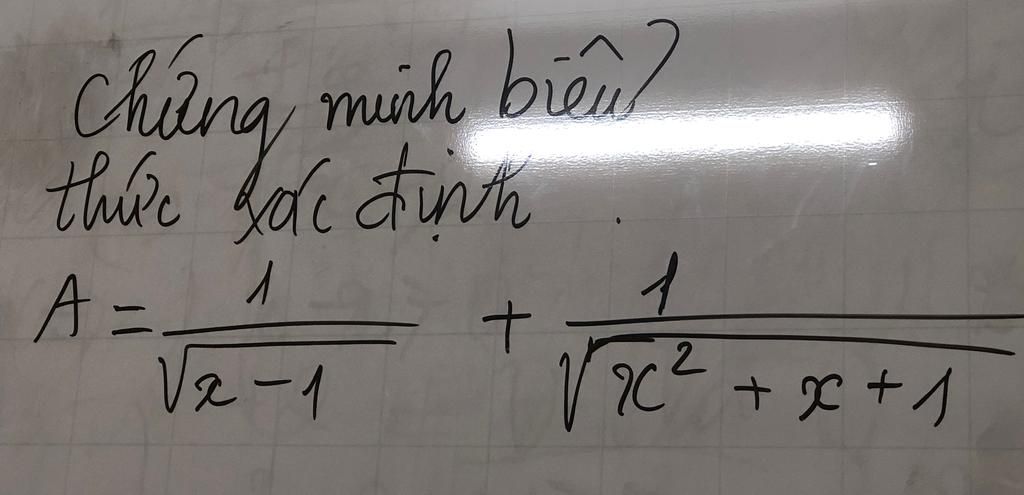 Chứng minh biểu
thức xác định.
A = \frac{1}{\sqrt{x-1}} + \frac{1}{\sqrt{x^2+x+1}}